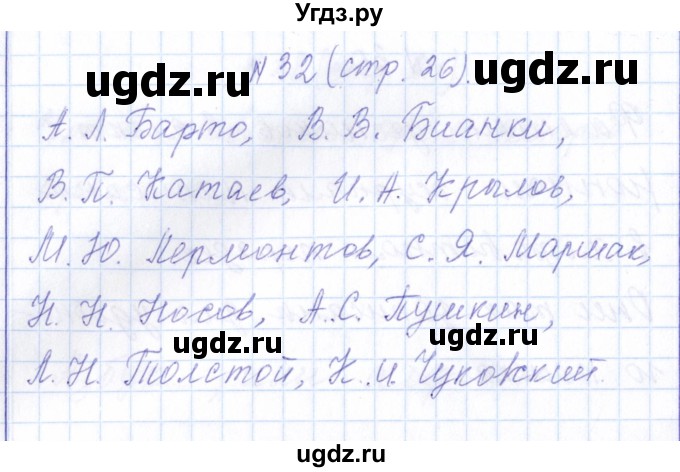 Угдз.ру
ugdz.ru ugdz.ru
№ 32 (стр. 26).
А. Л. Барто, В. В. Бианки,
ugdz.ru
В. П. Катаев, И. А. Крылов,
М. Ю. Лермонтов, С. Я. Маршак,
Н. Н. Носов, А. С. Пушкин,
ugdz.ru ugdz.ru
Л. Н. Толстой, К. И. Чуковский.
ugdz.ru